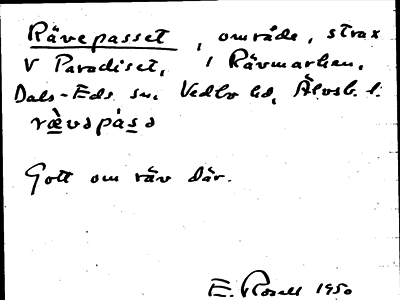 Rävepasset, område, strax
V Paradiset, i Rävmarken,
Dals-Eds sn, Vedbo hd, Älvsb. l.
rævəpásə
Gott om räv där.
E. Rosell 1950